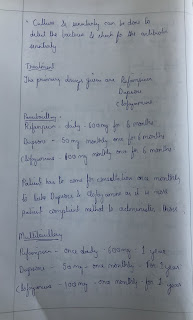 * Culture & sensitivity can be done to
detect the bacteria & check for the antibiotic
sensitivity
Treatment
The primary drugs given are Rifampium
Dapsone
Clofazimine
Paucibacillary
Rifampium - daily - 600mg for 6 months
Dapsone - 50 mg monthly once for 6 months
Clofazimine - 100 mg monthly once for 6 months
Patient has to come for consultation once monthly
to take Dapsone & Clofazimine as it is more
patient compliant method to administer
Multibacillary
Rifampium - once daily - 600mg - 1 year
Dapsone - 50mg - once monthly - for 1 year
Clofazimine - 100mg - once monthly - for 1 year